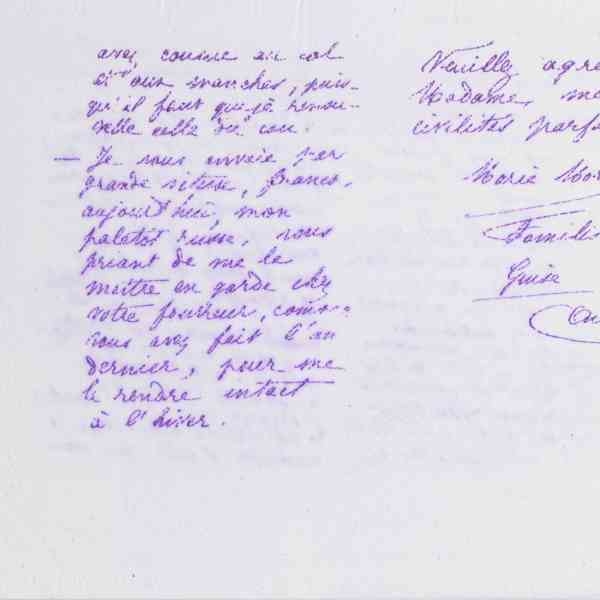 avez cousue au col
et aux manches, puis-
qu'il faut que je renou-
velle celle du cou.
— Je vous envoie par
grande vitesse, franco,
aujourd'hui, mon
paletot russe, vous
priant de me le
mettre en garde chez
votre fourreur, comme
vous avez fait l'an
dernier, pour me
le rendre intact
à l'hiver.
Veuillez agré
Madame, me
civilités parfa
Marie Mor
Familis
Guise